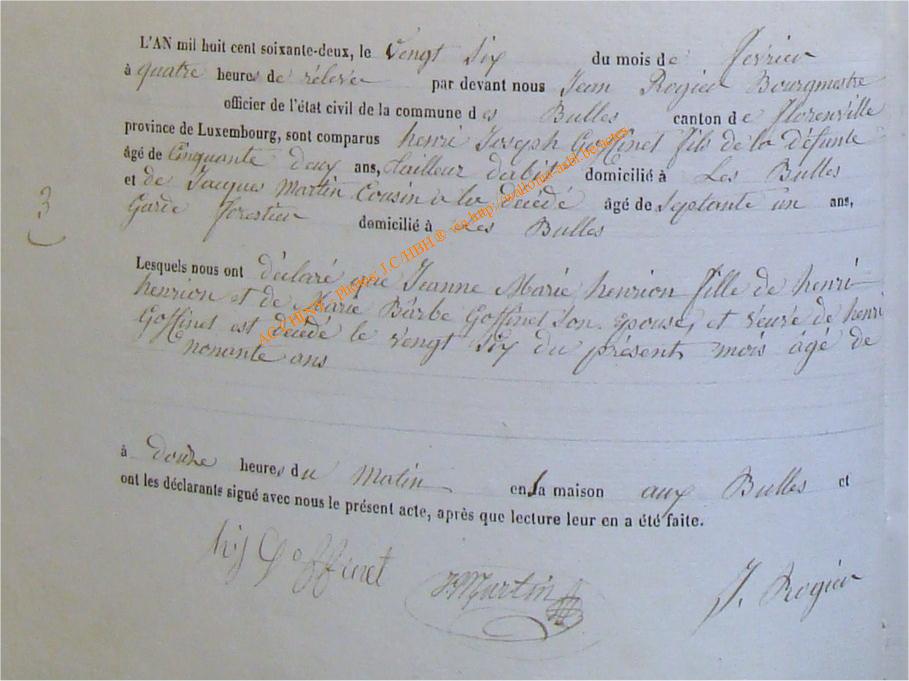 L'AN mil huit cent soixante-deux, le vingt six du mois de fevrier
à quatre heures de rélévé par devant nous Jean Rogier Bourgmestre
officier de l'état civil de la commune des Bulles canton de florenville
province de Luxembourg, sont comparus henri Joseph Goffinet fils de la défunte
âgé de Cinquante deux ans, tailleur d'abits domicilié à Les Bulles
et de Jacques Martin Cousin à la décédé âgé de Septante un ans,
Garde forestier domicilié à Les Bulles
3
Lesquels nous ont déclaré que Jeanne Marie henrion fille de henri
henrion et de Marie Barbe Goffinet son épouse, et veuve de henri
Goffinet est décédé le vingt six du présent mois âgé de
nonante ans
à douze heures du Matin en sa maison aux Bulles et
ont les déclarants signé avec nous le présent acte, après que lecture leur en a été faite.
hij Goffinet JMartin J. Rogier
ACCHINX - Photos J.C HBH ® via http://wallonia-asbl.be/actes